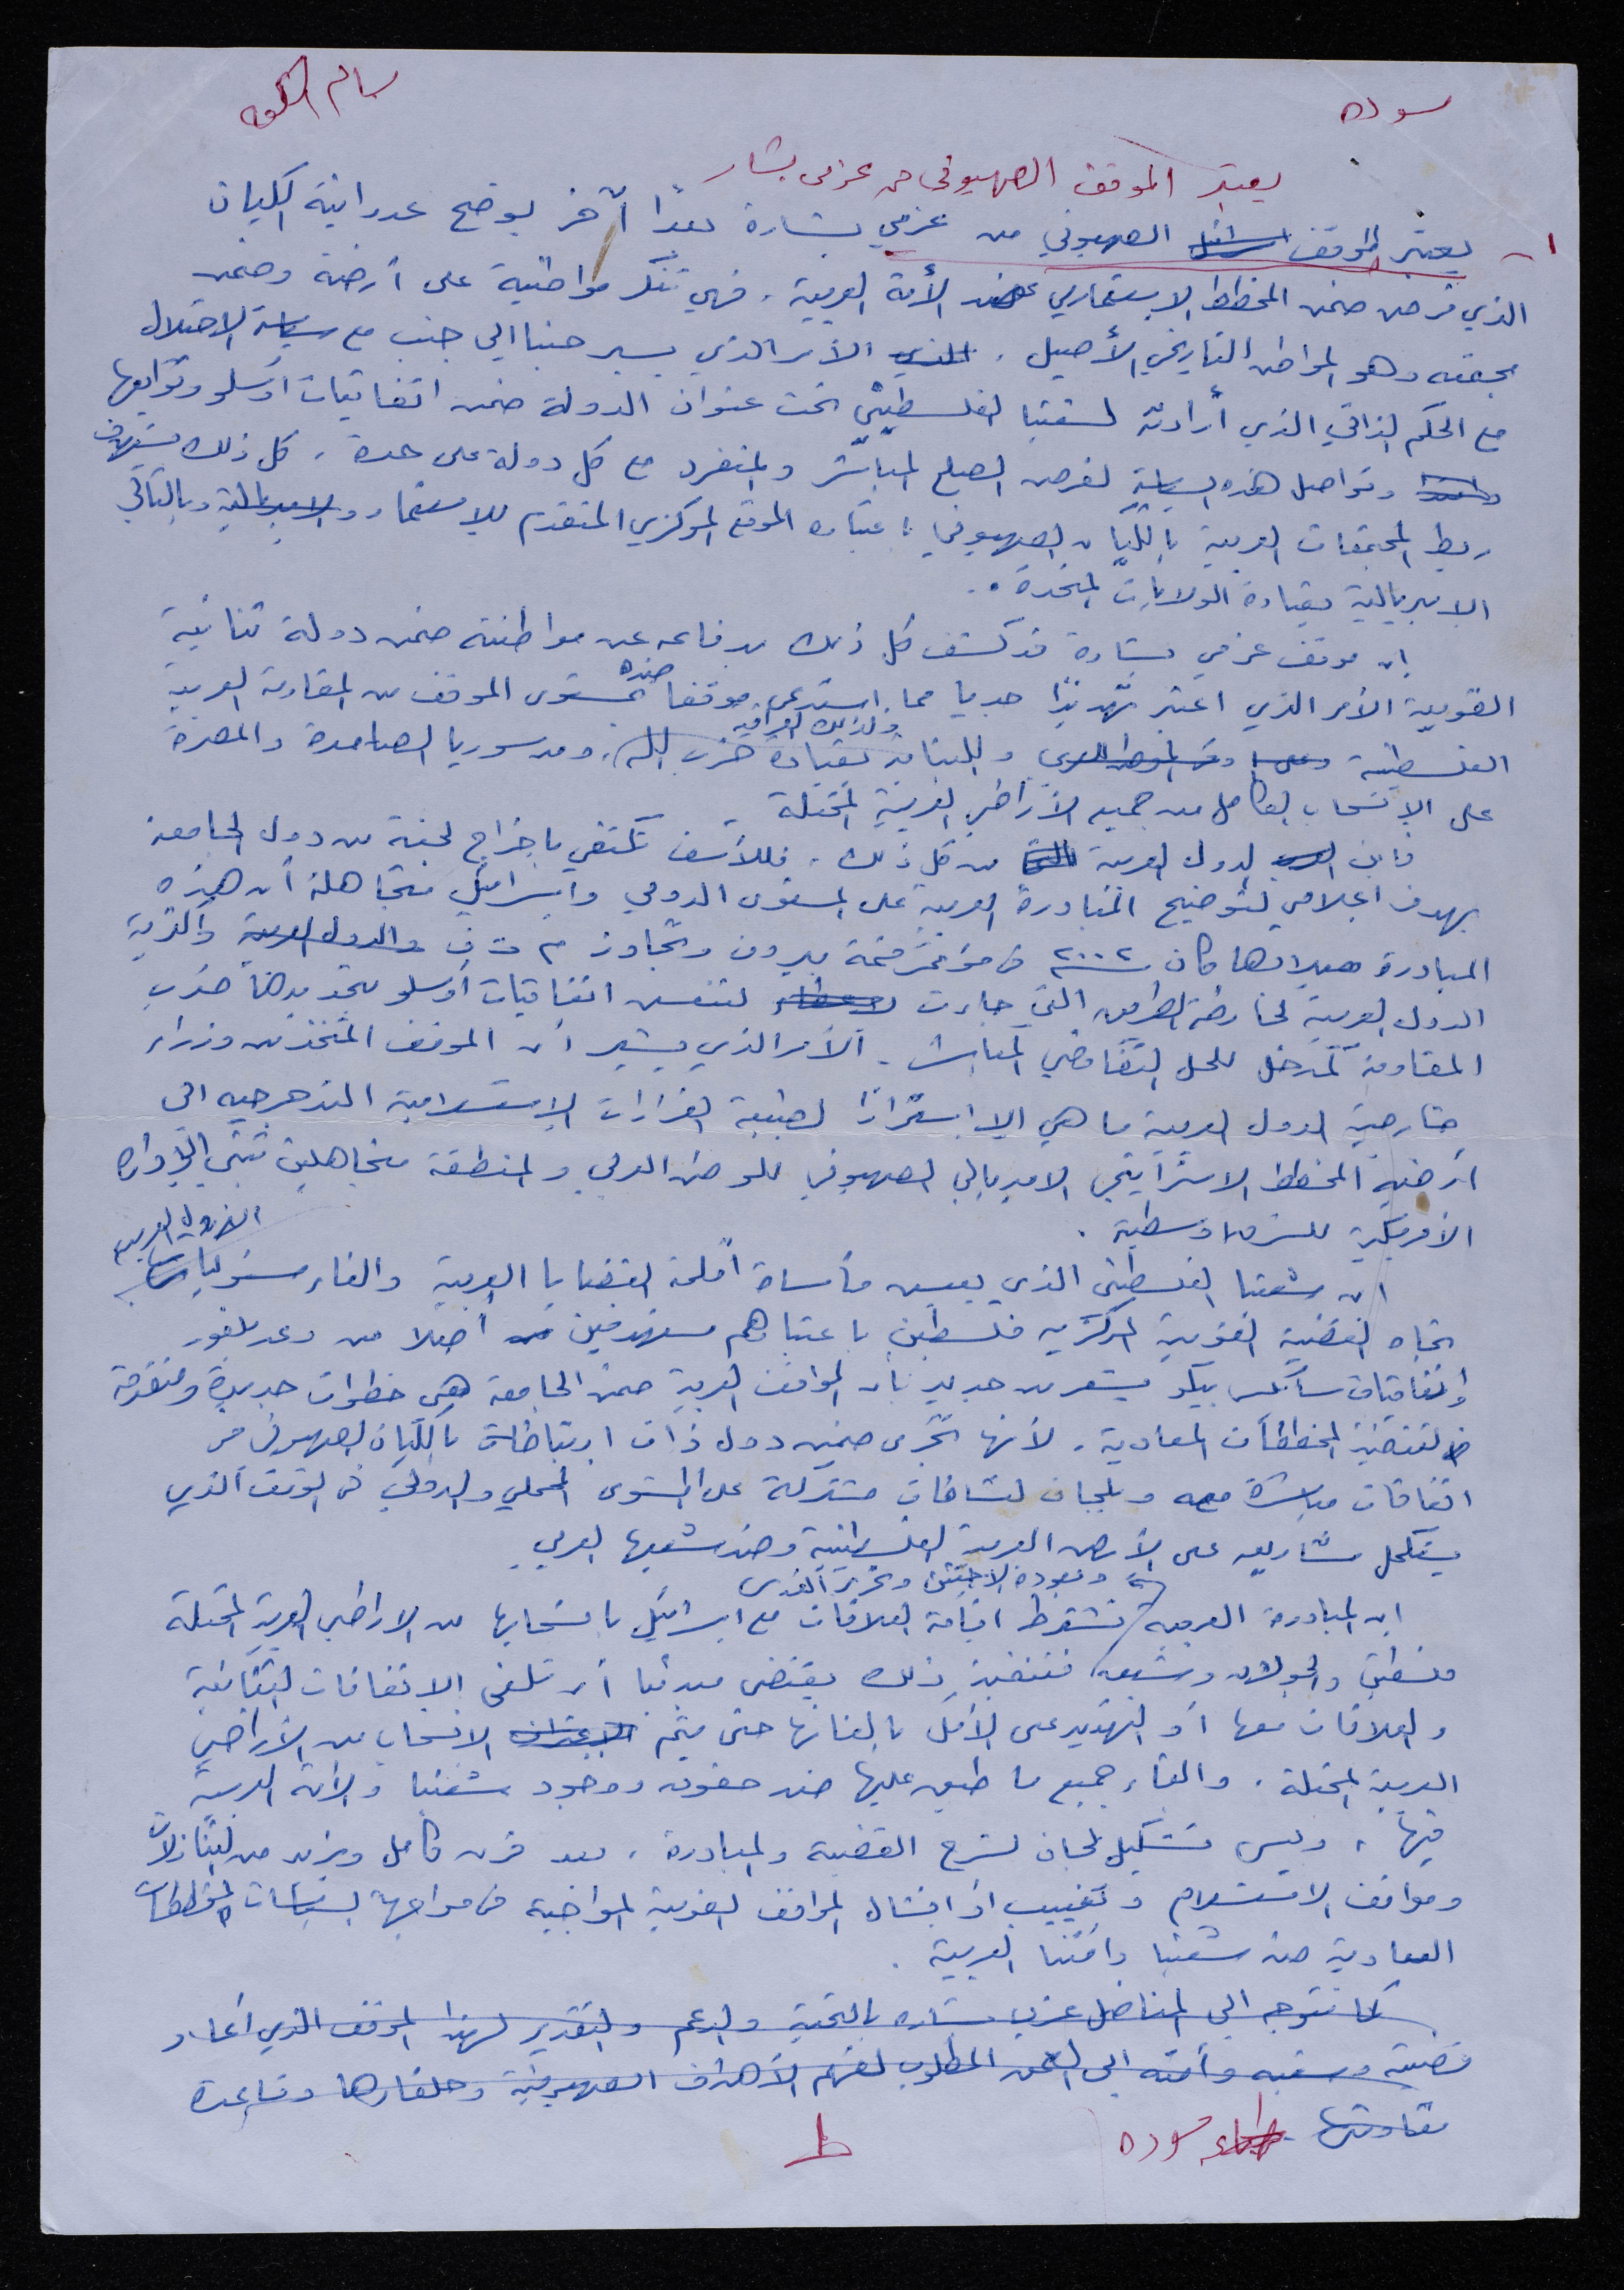 مسوده
يعتبر الموقف الصهيوني من عزمي بشار
١- يعتبر الموقف الصهيوني من عزمي بشارة بعدًا آخر يوضح عدوانية الكيان
الذي فرض ضمن المخطط الاستعماري ضد الأمة العربية، فهي تنكر مواطنية على أرضة وضمن
مجتمعه وهو المواطن التاريخي الأصيل، الأمر الذي يسير جنبا الى جنب مع سياسة الاحتلال
مع الحكم الذاتي الذي أرادته لشعبنا الفلسطيني تحت عنوان الدولة ضمن اتفاقيات أوسلو وتوابعها
وتواصل هذه السياسة لفرض الصلح المباشر والمنفرد مع كل دولة على حدة، كل ذلك يستهدف
ربط المجتمعات العربية بالكيان الصهيوني باعتباره الموقع المركزي المتقدم للاستعمار والامبريالية وبالتالي
الامبريالية بقيادة الولايات المتحدة..
ان موقف عزمي بشارة قد كشف كل ذلك بدفاعه عن مواطنته ضمن دولة ثنائية
القومية الأمر الذي اعتبر تهديدًا جديا مما استدعى موقفا ضده بمستوى الموقف من المقاومة العربية
الفلسطينية وكذلك العراقية واللبنانية بقيادة حزب الله، ومن سوريا الصامدة والمصرة
على الانسحاب الكامل من جميع الأراضي العربية المحتلة
فأين الدول العربية من كل ذلك، فللأسف تكتفي باخراج لجنة من دول الجامعة
بهدف اعلامي لتوضيح المبادرة العربية على المستوى الدولي واسرائيل متجاهلة أن هذه
المبادرة ميلادها كان سنة ٢٠٠٢ في مؤتمر قمة بيروت وتجاوز م ت ف والدول العربية
الدول العربية لخارطة الطريق التي جاءت لتنعش اتفاقيات أوسلو بتحديدها ضرب
المقاومة كمدخل للحل التفاوضي المباشر. الأمر الذي يشير أن الموقف المتخذ من وزراء
خارجية الدول العربية ما هي الا استمرارًا لطبيعة القرارات الاستسلامية المتدحرجه الى
أرضية المخطط الاستراتيجي الامبريالي الصهيوني للوطن العربي والمنطقة متجاهلين تبني الادارة
الأمريكية للشرق اوسطية.
ان شعبنا الفلسطيني الذي يعيش مأساة أقلمة القضايا العربية والغاء مسؤوليات الدول العربية
تجاه القضية القومية المركزية فلسطين باعتبارهم مستهدفين أصلا من وعد بلفور
واتفاقيات سايكس بيكو يشعر من جديد بأن المواقف العربية ضمن الجامعة هي خطوات جديدة ومتقدمة
لتنفيذ المخططات المعادية، لأنها تجرى ضمن دول ذات ارتباطات بالكيان الصهيوني من
اتفاقات مباشرة معه وبلجان نشاطات مشتركة على المستوى المحلي والدولي في الوقت الذي
يستكمل مشاريعه على الأرض العربية الفلسطينية وضد شعبها العربي
ان المبادرة العربية تشترط اقامة العلاقات مع اسرائيل بانسحابها من الاراضي العربية المحتلة
وبعودة اللاجئين وتحرير القدس
فلسطين والجولان وشبعه فتنفيذ ذلك يقتضي مبدئيا أن تلغى الاتفاقات الثنائية
والعلاقات معها أو التهديد على الأقل بالغائها حتى يتم الانسحاب من الأراضي
العربية المحتلة، والغاء جميع ما طبق عليها ضد حقوق ووجود شعبنا والأمة العربية
فيها، وليس تشكيل لجان لشرح القضية والمبادرة، بعد قرن كامل ويزيد من التنازلات
ومواقف الاستسلام وتغييب أو افشال المواقف القومية المواجهة في مواجهة السياسات والمخططات
المعادية ضد شعبنا وأمتنا العربية.
كما نتوجه الى المناضل عزمي بشاره بالتحية والدعم والتقدير لهذا الموقف الذي أعاد
قضيته وشعبه وأمته الى العمق المطلوب لفهم الأهداف الصهيونية وحلفاءها وقاعدة
مقاومتها
مسوده
ط